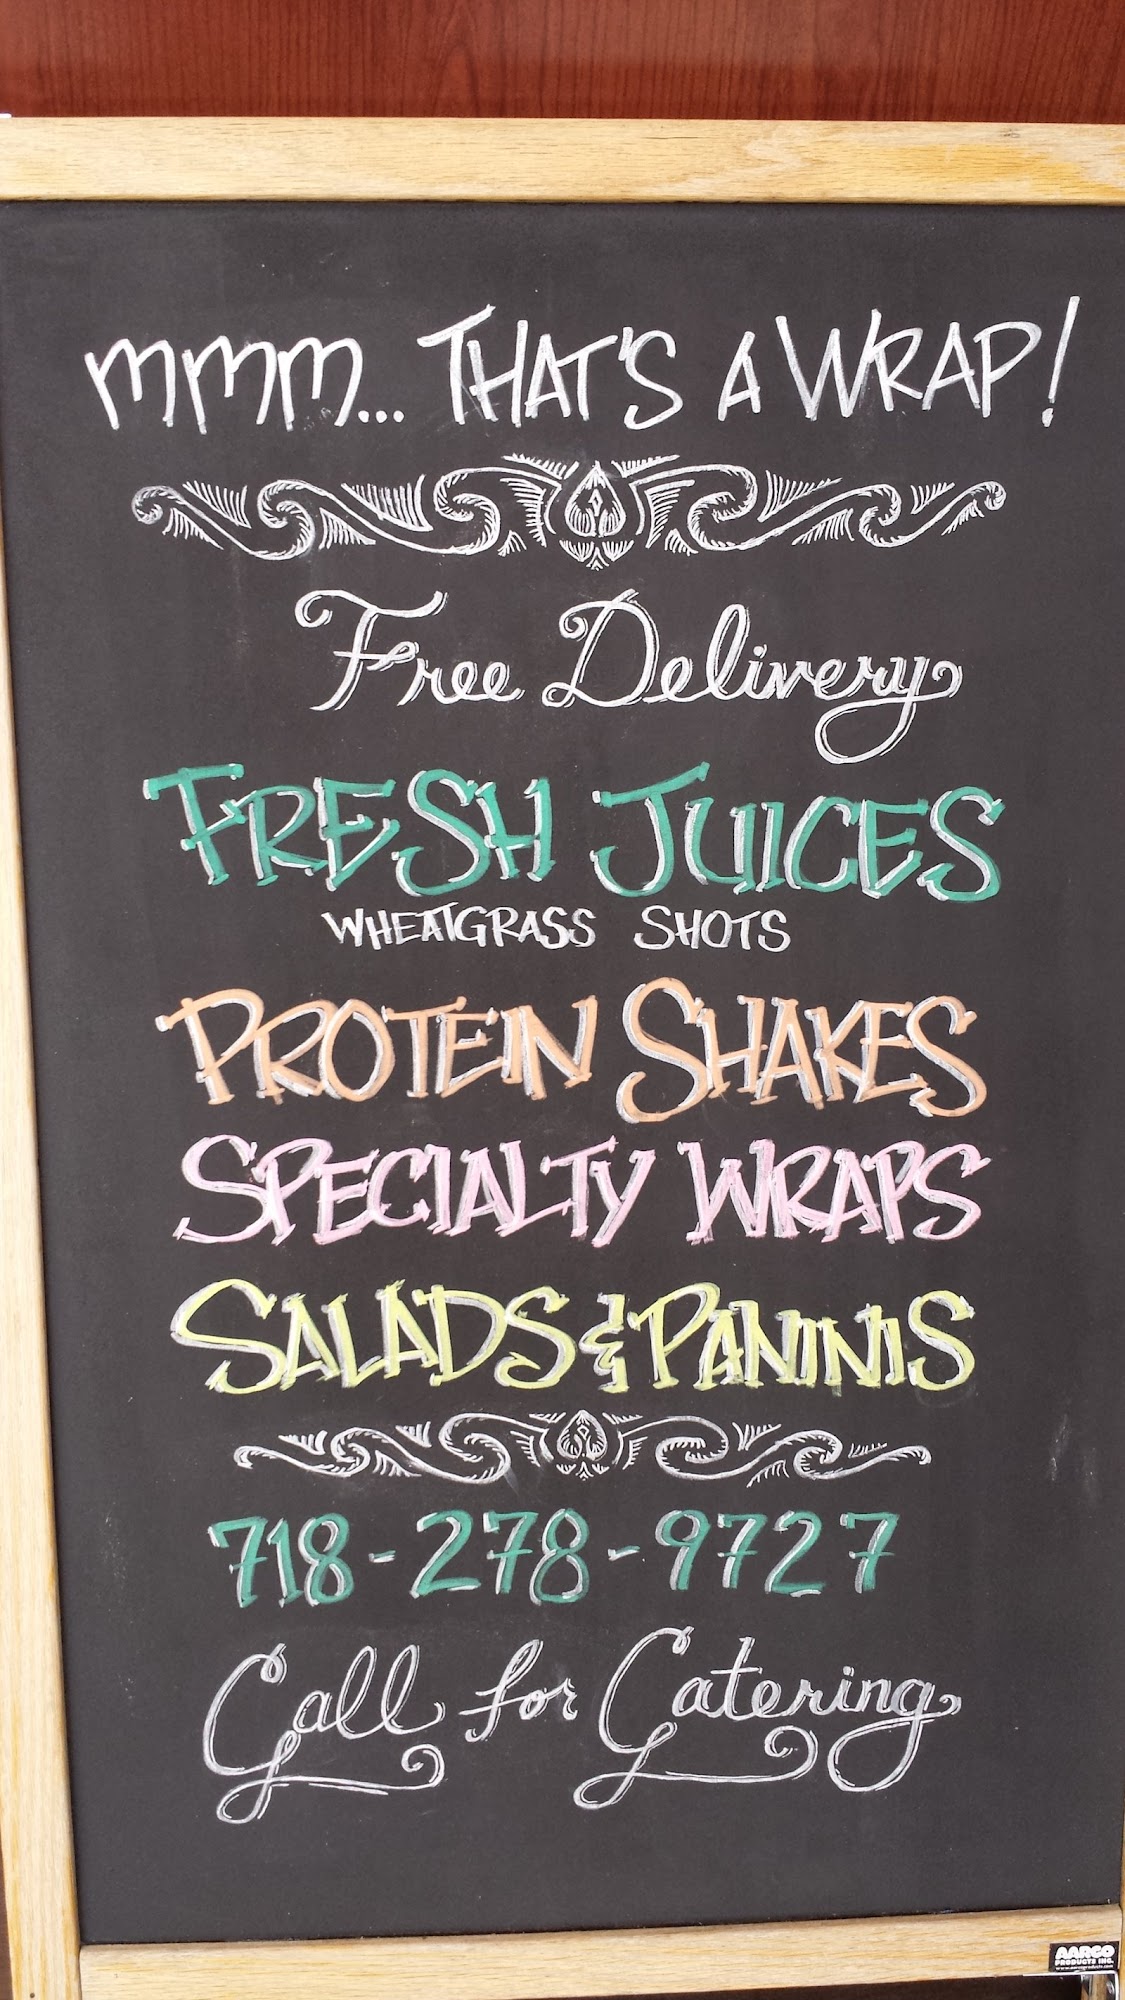 mmm... THAT'S A WRAP!
Free Delivery
FRESH JUICES
WHEATGRASS SHOTS
PROTEIN SHAKES
SPECIALTY WRAPS
SALADS & PANINIS
718-278-9727
Call for Catering
AARCO
PRODUCTS INC.
www.aarcoproducts.com